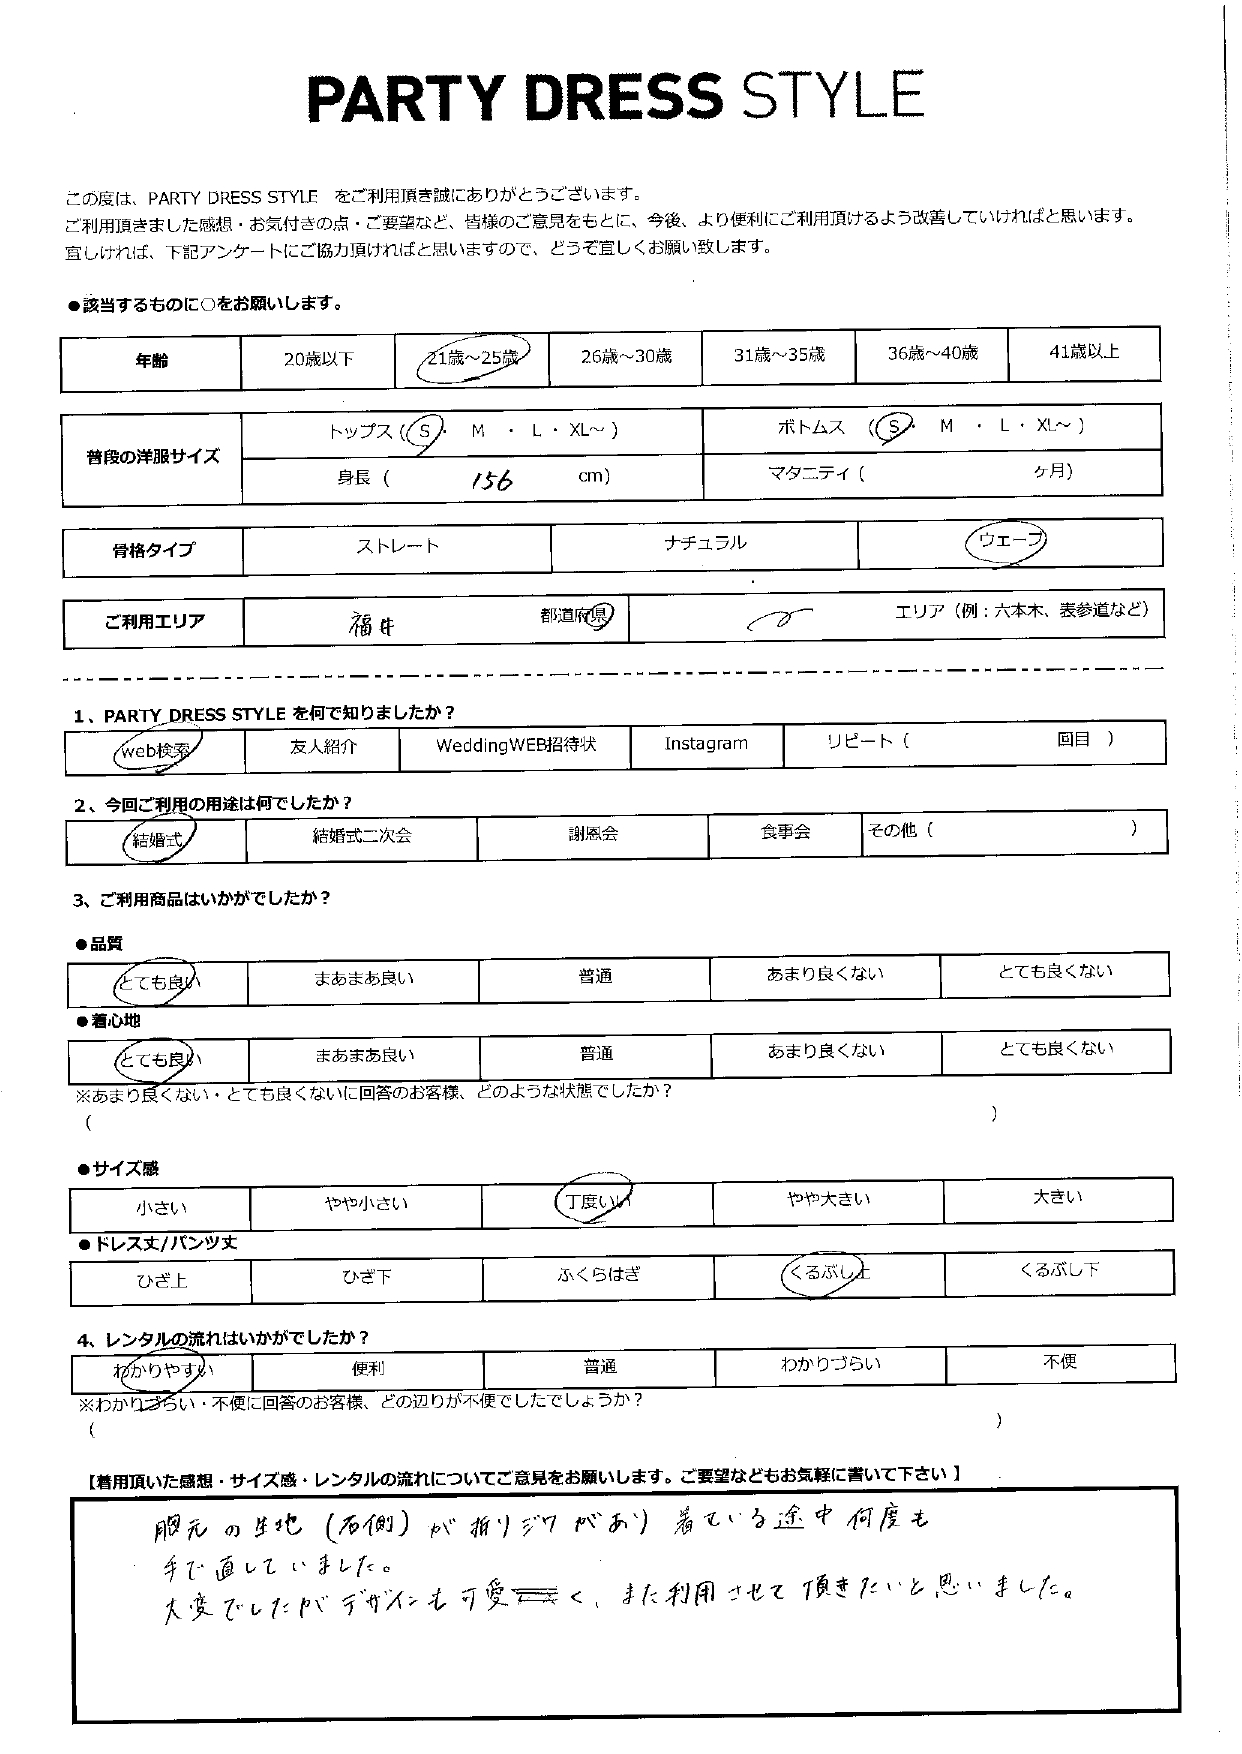 PARTY DRESS STYLE
この度は、PARTY DRESS STYLE をご利用頂き誠にありがとうございます。
ご利用頂きました感想・お気付きの点・ご要望など、皆様のご意見をもとに、今後、より便利にご利用頂けるよう改善していければと思います。
宜しければ、下記アンケートにご協力頂ければと思いますので、どうぞ宜しくお願い致します。
●該当するものに○をお願いします。
年齢 20歳以下 21歳～25歳 26歳～30歳 31歳～35歳 36歳～40歳 41歳以上
普段の洋服サイズ トップス（ S ・ M ・ L ・ XL～ ） ボトムス （ S ・ M ・ L ・ XL～ ）
身長（ 156 cm） マタニティ（ ヶ月）
骨格タイプ ストレート ナチュラル ウェーブ
ご利用エリア 福井 都道府県 エリア（例：六本木、表参道など）
1、PARTY DRESS STYLE を何で知りましたか？
web検索 友人紹介 WeddingWEB招待状 Instagram リピート（ 回目 ）
2、今回ご利用の用途は何でしたか？
結婚式 結婚式二次会 謝恩会 食事会 その他（ ）
3、ご利用商品はいかがでしたか？
●品質
とても良い まあまあ良い 普通 あまり良くない とても良くない
●着心地
とても良い まあまあ良い 普通 あまり良くない とても良くない
※あまり良くない・とても良くないに回答のお客様、どのような状態でしたか？
（ ）
●サイズ感
小さい やや小さい 丁度いい やや大きい 大きい
●ドレス丈/パンツ丈
ひざ上 ひざ下 ふくらはぎ くるぶし上 くるぶし下
4、レンタルの流れはいかがでしたか？
わかりやすい 便利 普通 わかりづらい 不便
※わかりづらい・不便に回答のお客様、どの辺りが不便でしたでしょうか？
（ ）
【着用頂いた感想・サイズ感・レンタルの流れについてご意見をお願いします。ご要望などもお気軽に書いて下さい】
胸元の生地（右側）が折りジワがあり着ている途中何度も
手で直していました。
大変でしたがデザインも可愛く、また利用させて頂きたいと思いました。